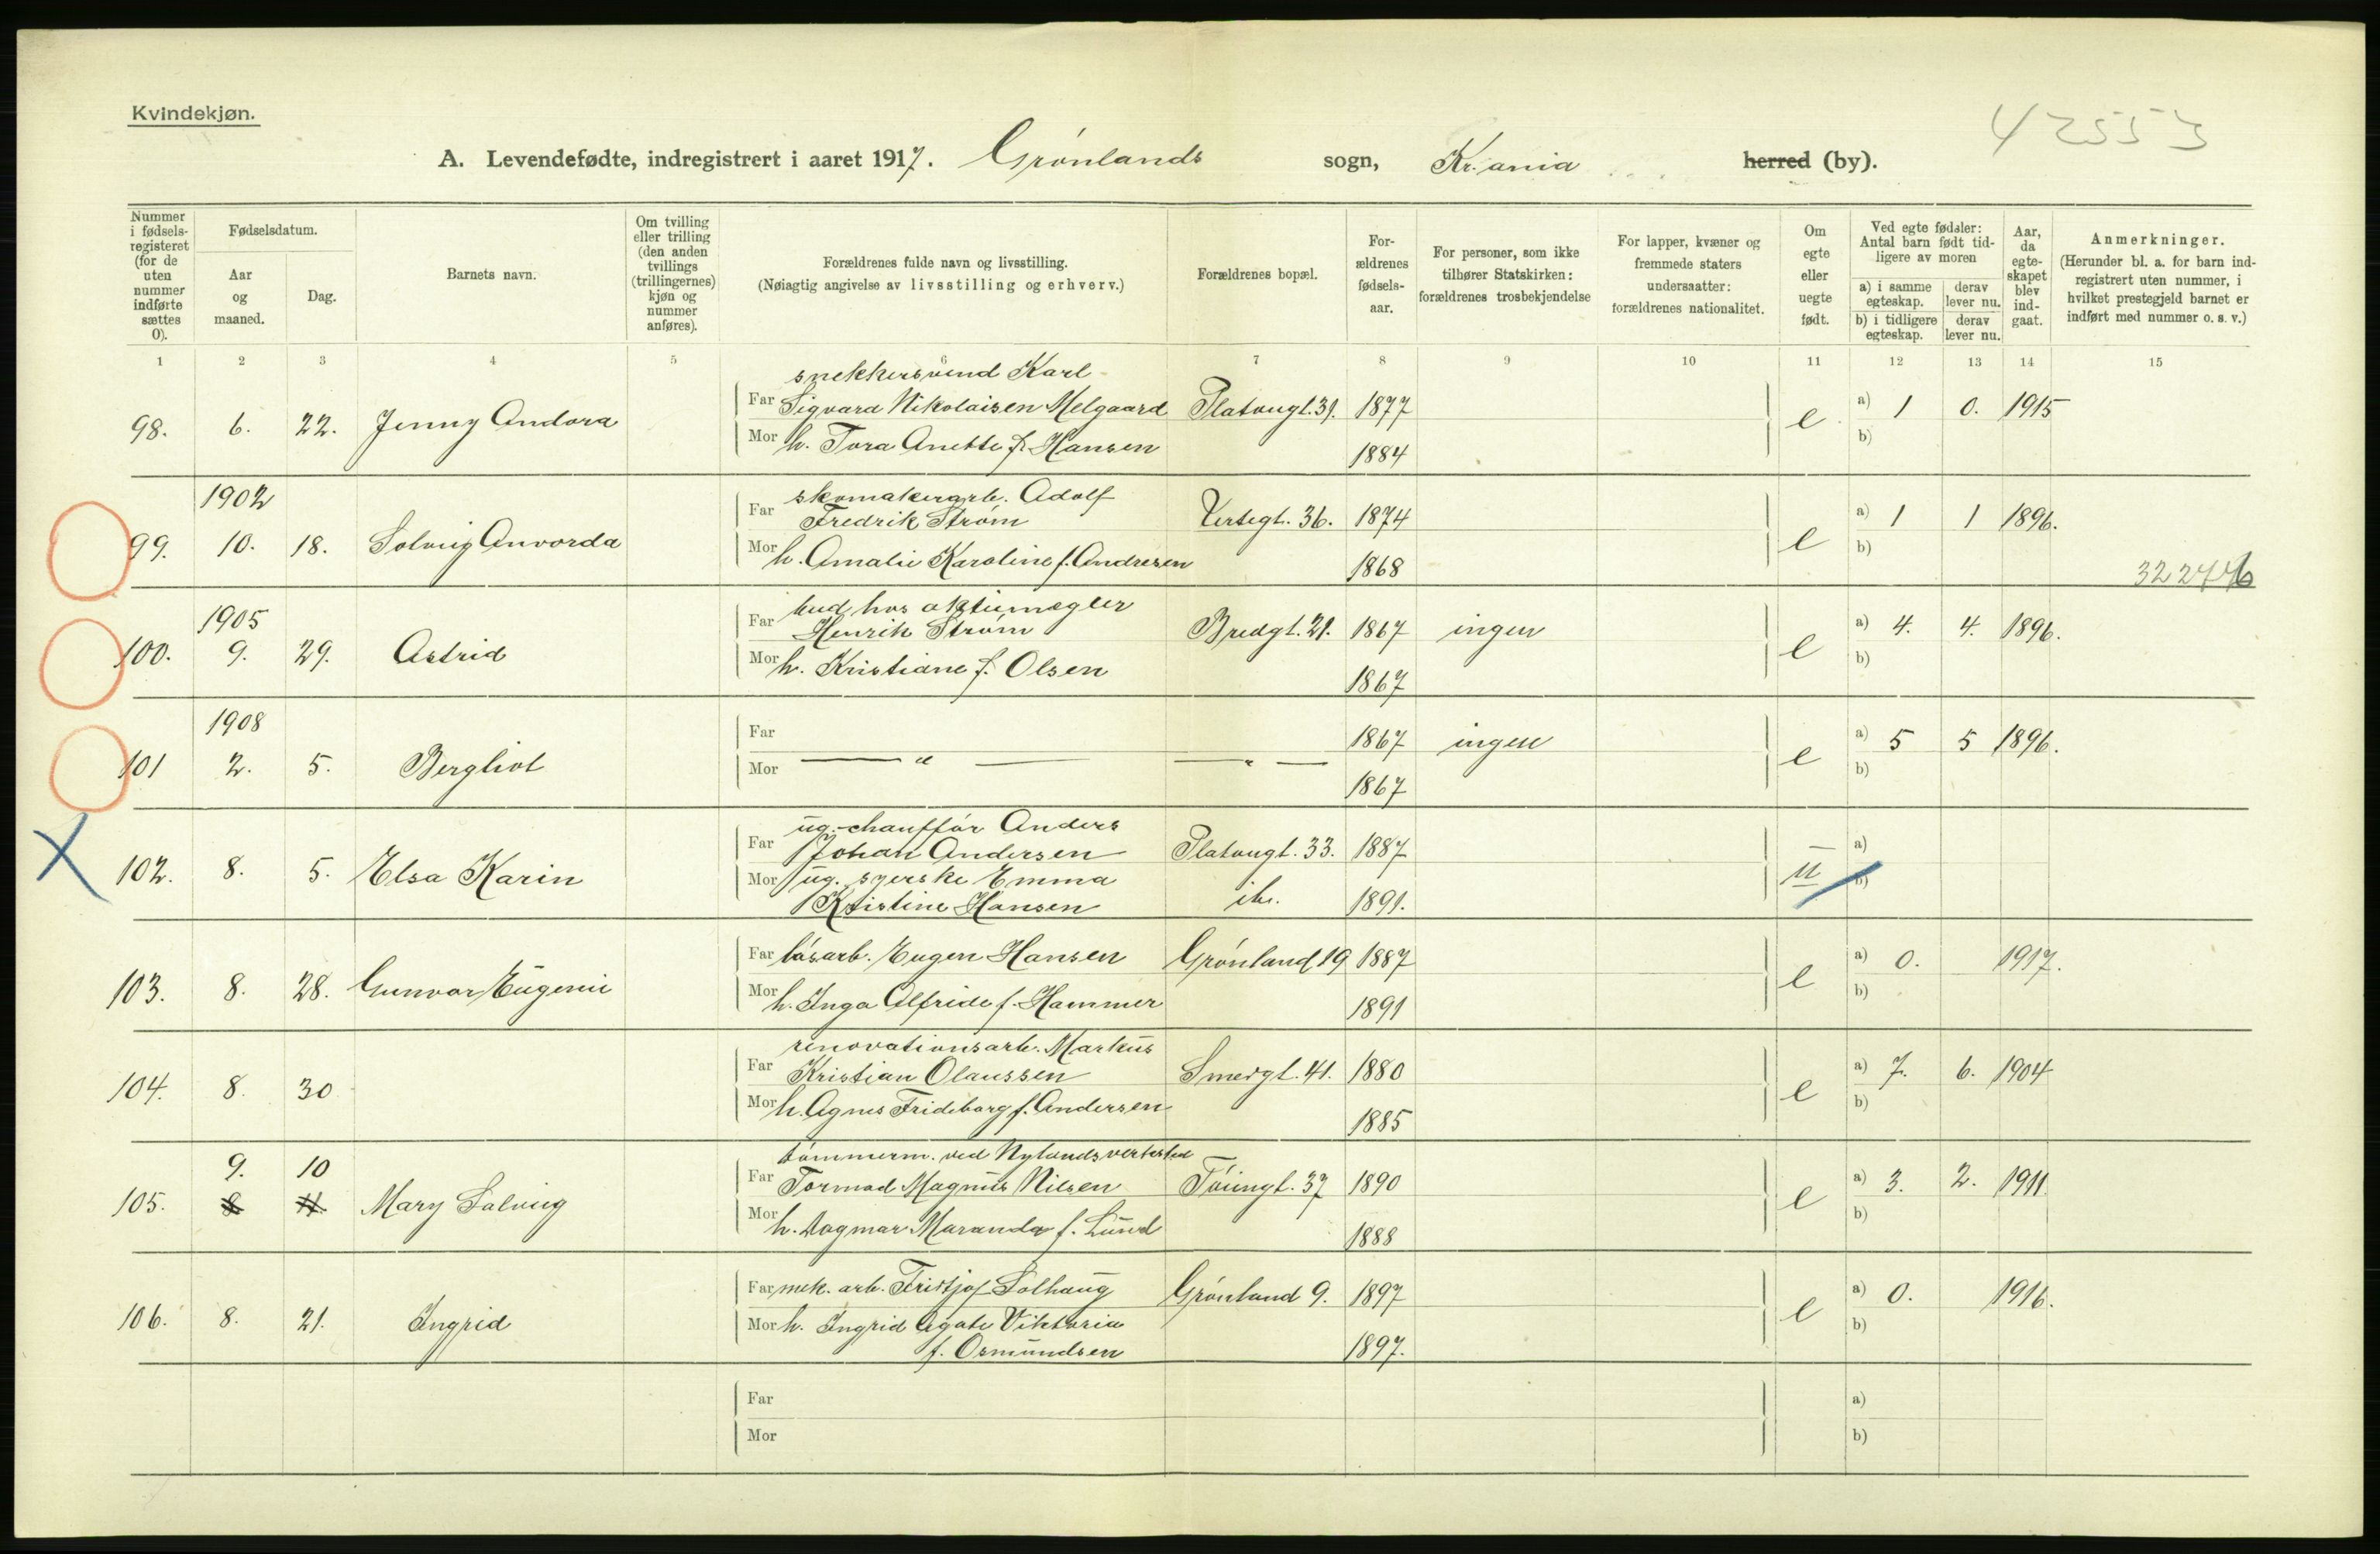 Kvindekjøn.
42553
A. Levendefødte, indregistrert i aaret 1917. Grønlands sogn, Kr.ania herred (by).
Nummer i fødsels-registeret (for de uten nummer indførte sættes 0).
Fødselsdatum.
Aar og maaned.
Dag.
Barnets navn.
Om tvilling eller trilling (den anden tvillings (trillingernes) kjøn og nummer anføres).
Forældrenes fulde navn og livsstilling.
(Nøiagtig angivelse av livsstilling og erhverv.)
Forældrenes bopæl.
For-ældrenes fødsels-aar.
For personer, som ikke tilhører Statskirken: forældrenes trosbekjendelse
For lapper, kvæner og fremmede staters undersaatter: forældrenes nationalitet.
Om egte eller uegte født.
Ved egte fødsler: Antal barn født tid-ligere av moren
a) i samme egteskap.
derav lever nu.
b) i tidligere egteskap.
derav lever nu.
Aar, da egte-skapet blev ind-gaat.
Anmerkninger.
(Herunder bl. a. for barn ind-registrert uten nummer, i hvilket prestegjeld barnet er indført med nummer o. s. v.)
1 2 3 4 5 6 7 8 9 10 11 12 13 14 15
snekkersvend Karl
98. 6. 22. Jenny Andora Far Sigvard Nikolaisen Melgaard Platougt. 31. 1877 e a) 1 0. 1915
Mor h. Tora Anette f. Hansen 1884 b)
1902 skomakerarb. Adolf
99. 10. 18. Solveig Anvorda Far Fredrik Strøm Vertegt. 36. 1874 e a) 1 1 1896.
Mor h. Amalie Karoline f. Andresen 1868 b)
1905 bud hos aktiemægler
100. 9. 29. Astrid Far Henrik Strøm Bredgt. 21. 1867 ingen e a) 4. 4. 1896.
Mor h. Kristiane f. Olsen 1867 b)
1908
101 2. 5. Bergliot Far — " — — " — 1867 ingen e a) 5 5 1896.
Mor 1867 b)
ug. chauffør Anders
102. 8. 5. Elsa Karin Far Johan Andersen Platougt. 33. 1887 u a)
Mor ug. syerske Emma
Kristine Hansen ibr. 1891. b)
103. 8. 28. Gunvor Eugenie Far løsarb. Eugen Hansen Grønland 19 1887 e a) 0. 1917.
Mor h. Inga Alfride f. Hammer 1891 b)
renovationsarb. Markus
104. 8. 30 Far Kristian Olaussen Smedgt. 41. 1880 e a) 7. 6. 1904
Mor h. Agnes Fridiborg f. Andersen 1885 b)
9. 10 tømmerm. ved Nylands verksted
105. 8 11. Mary Solveig Far Tormod Magnus Nilsen Tøiengt. 37 1890 e a) 3. 2. 1911.
Mor h. Dagmar Maranda f. Lund 1888 b)
106. 8. 21. Ingrid Far mek. arb. Fridtjof Solhaug Grønland 9. 1897 e a) 0. 1916.
Mor h. Ingrid Agate Viktoria
f. Osmundsen 1897. b)
Far a)
Mor b)